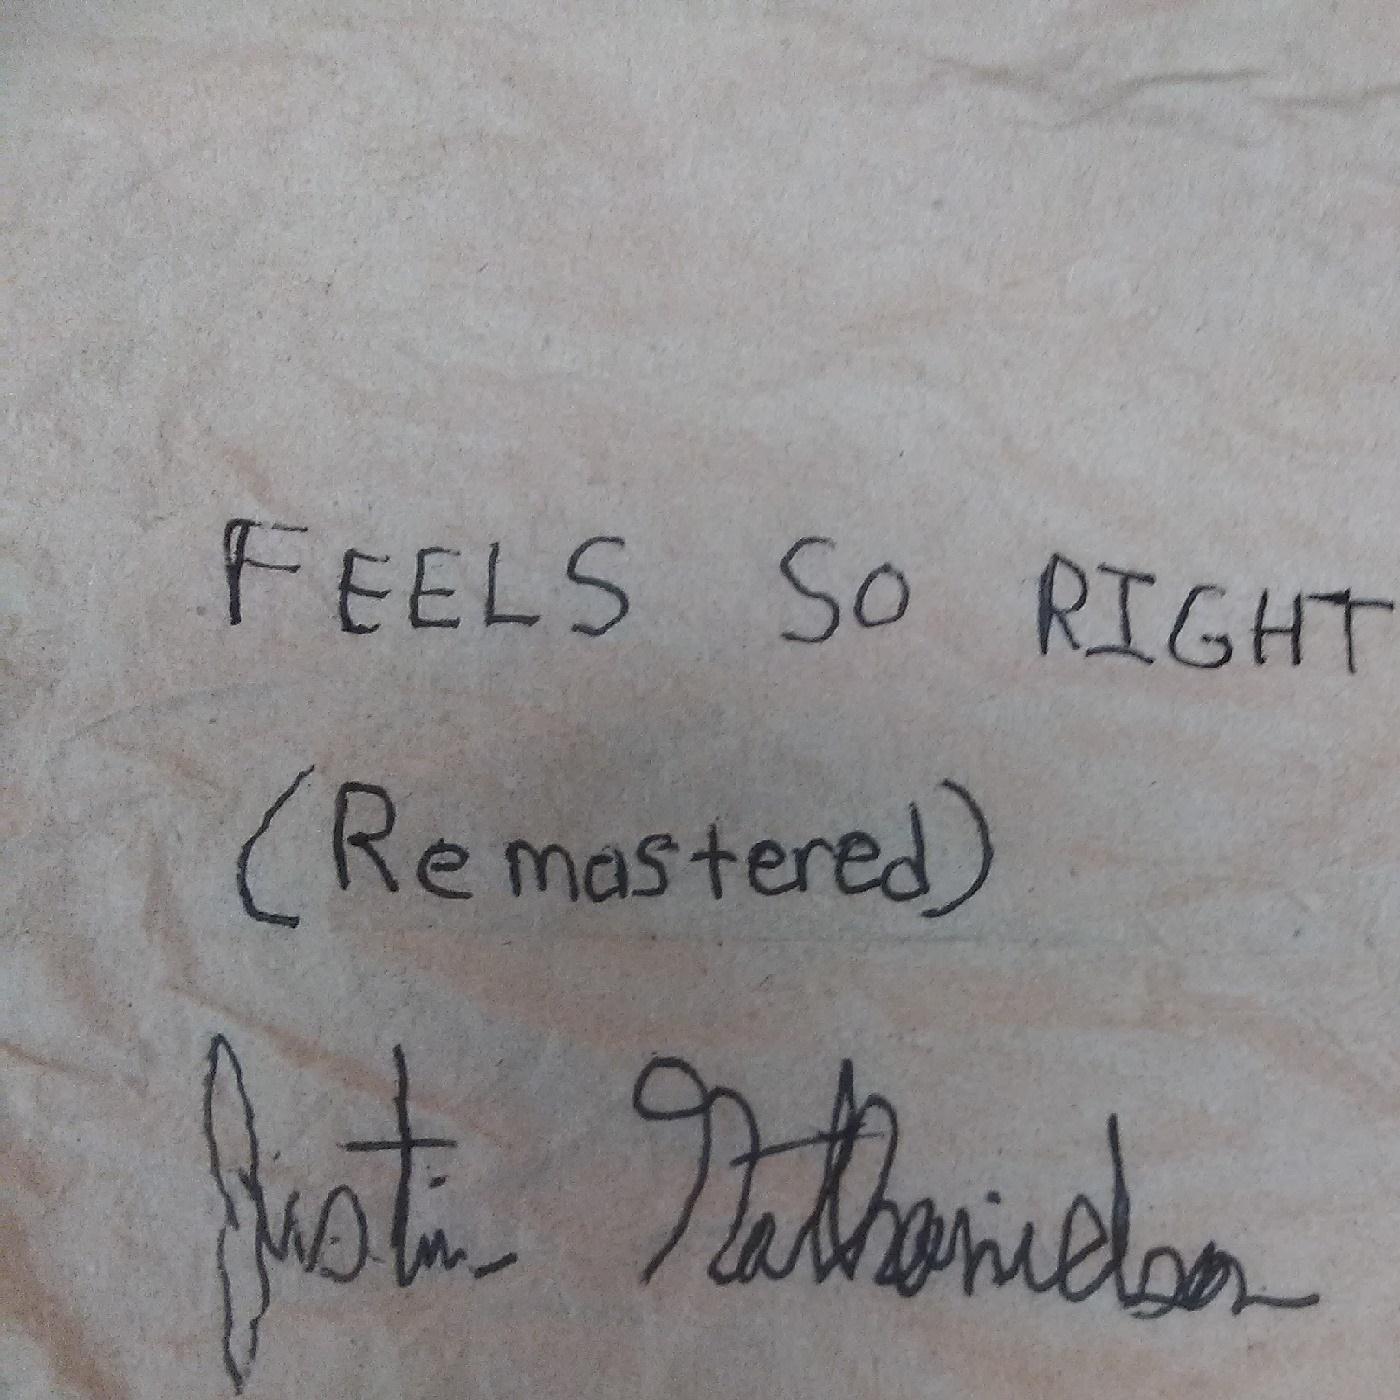 FEELS SO RIGHT
(Remastered)
Justin Nathanielson